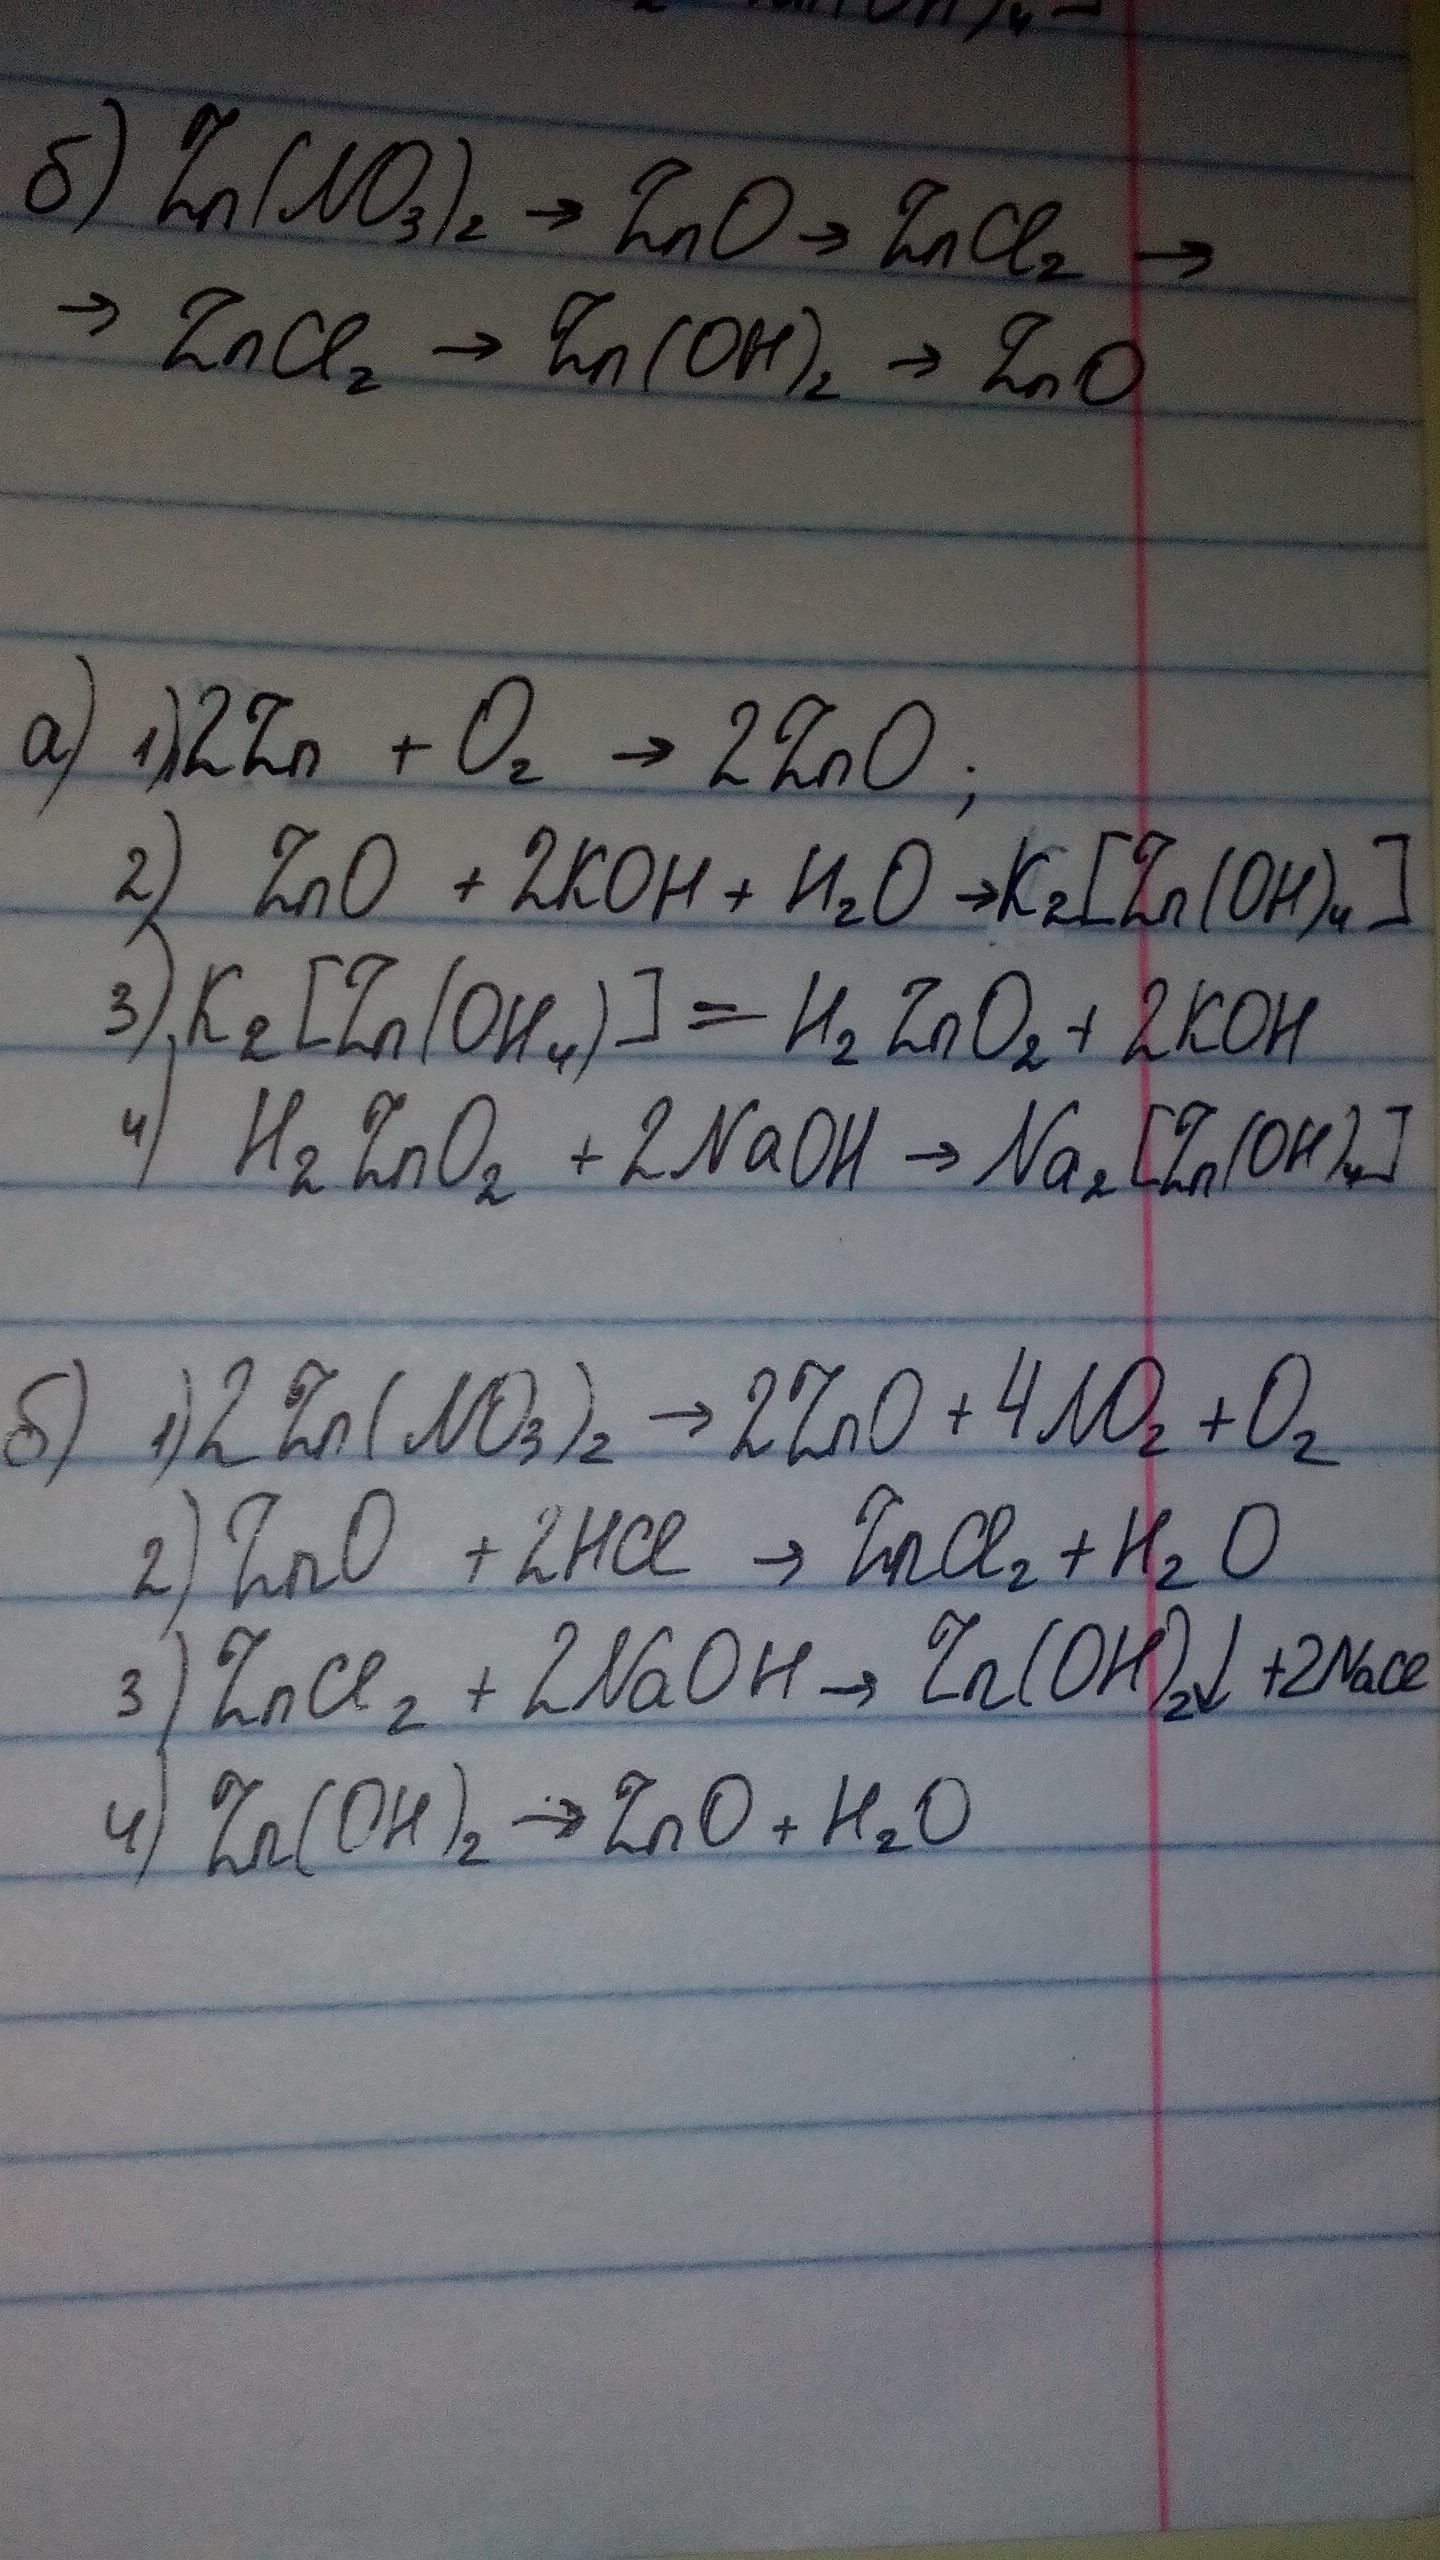 б) Zn(NO₃)₂ → ZnO → ZnCl₂ →
→ ZnCl₂ → Zn(OH)₂ → ZnO
а) 1) 2Zn + O₂ → 2ZnO;
2) ZnO + 2KOH + H₂O → K₂[Zn(OH)₄]
3) K₂[Zn(OH₄)] = H₂ZnO₂ + 2KOH
4) H₂ZnO₂ + 2NaOH → Na₂[Zn(OH)₄]
б) 1) 2Zn(NO₃)₂ → 2ZnO + 4NO₂ + O₂
2) ZnO + 2HCl → ZnCl₂ + H₂O
3) ZnCl₂ + 2NaOH → Zn(OH)₂↓ + 2NaCl
4) Zn(OH)₂ → ZnO + H₂O